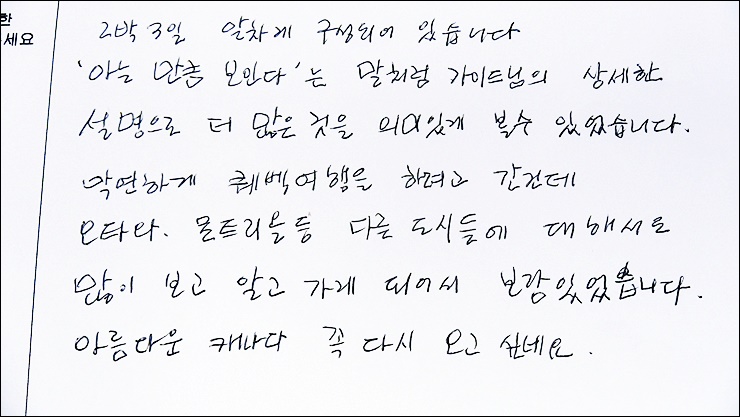 한
세요
2박 3일 알차게 구성되어 있습니다
'아는 만큼 보인다'는 말처럼 가이드님의 상세한
설명으로 더 많은 것을 의미있게 볼수 있었습니다.
막연하게 퀘벡여행을 하려고 간건데
오타와. 몬트리올등 다른 도시들에 대해서도
많이 보고 알고 가게 되어서 보람있었습니다.
아름다운 캐나다 꼭 다시 오고 싶네요.